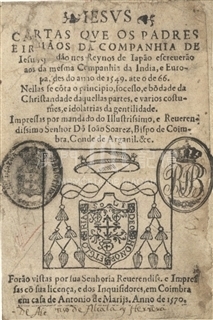 IESVS
CARTAS QUE OS PADRES
E IRMÃOS DA COMPANHIA DE
Iesus, que andão nos Reynos de Iapão escreuerão
aos da mesma Companhia da India, e Euro-
pa, des do anno de 1549. ate o de 66.
Nellas se cõta o principio, socesso, e bõdade da
Christandade daquellas partes, e varios costu-
mes, e idolatrias da gentilidade.
Impressas por mandado do Illustrissimo, e Reueren-
dissimo Senhor Dõ Ioão Soarez, Bispo de Coim-
bra, Conde de Arganil. &c.
Forão vistas por sua Senhoria Reuerendiss. e Impres-
sas cõ sua licença, e dos Inquisidores, em Coimbra
em casa de Antonio de Marijs. Anno de 1570.